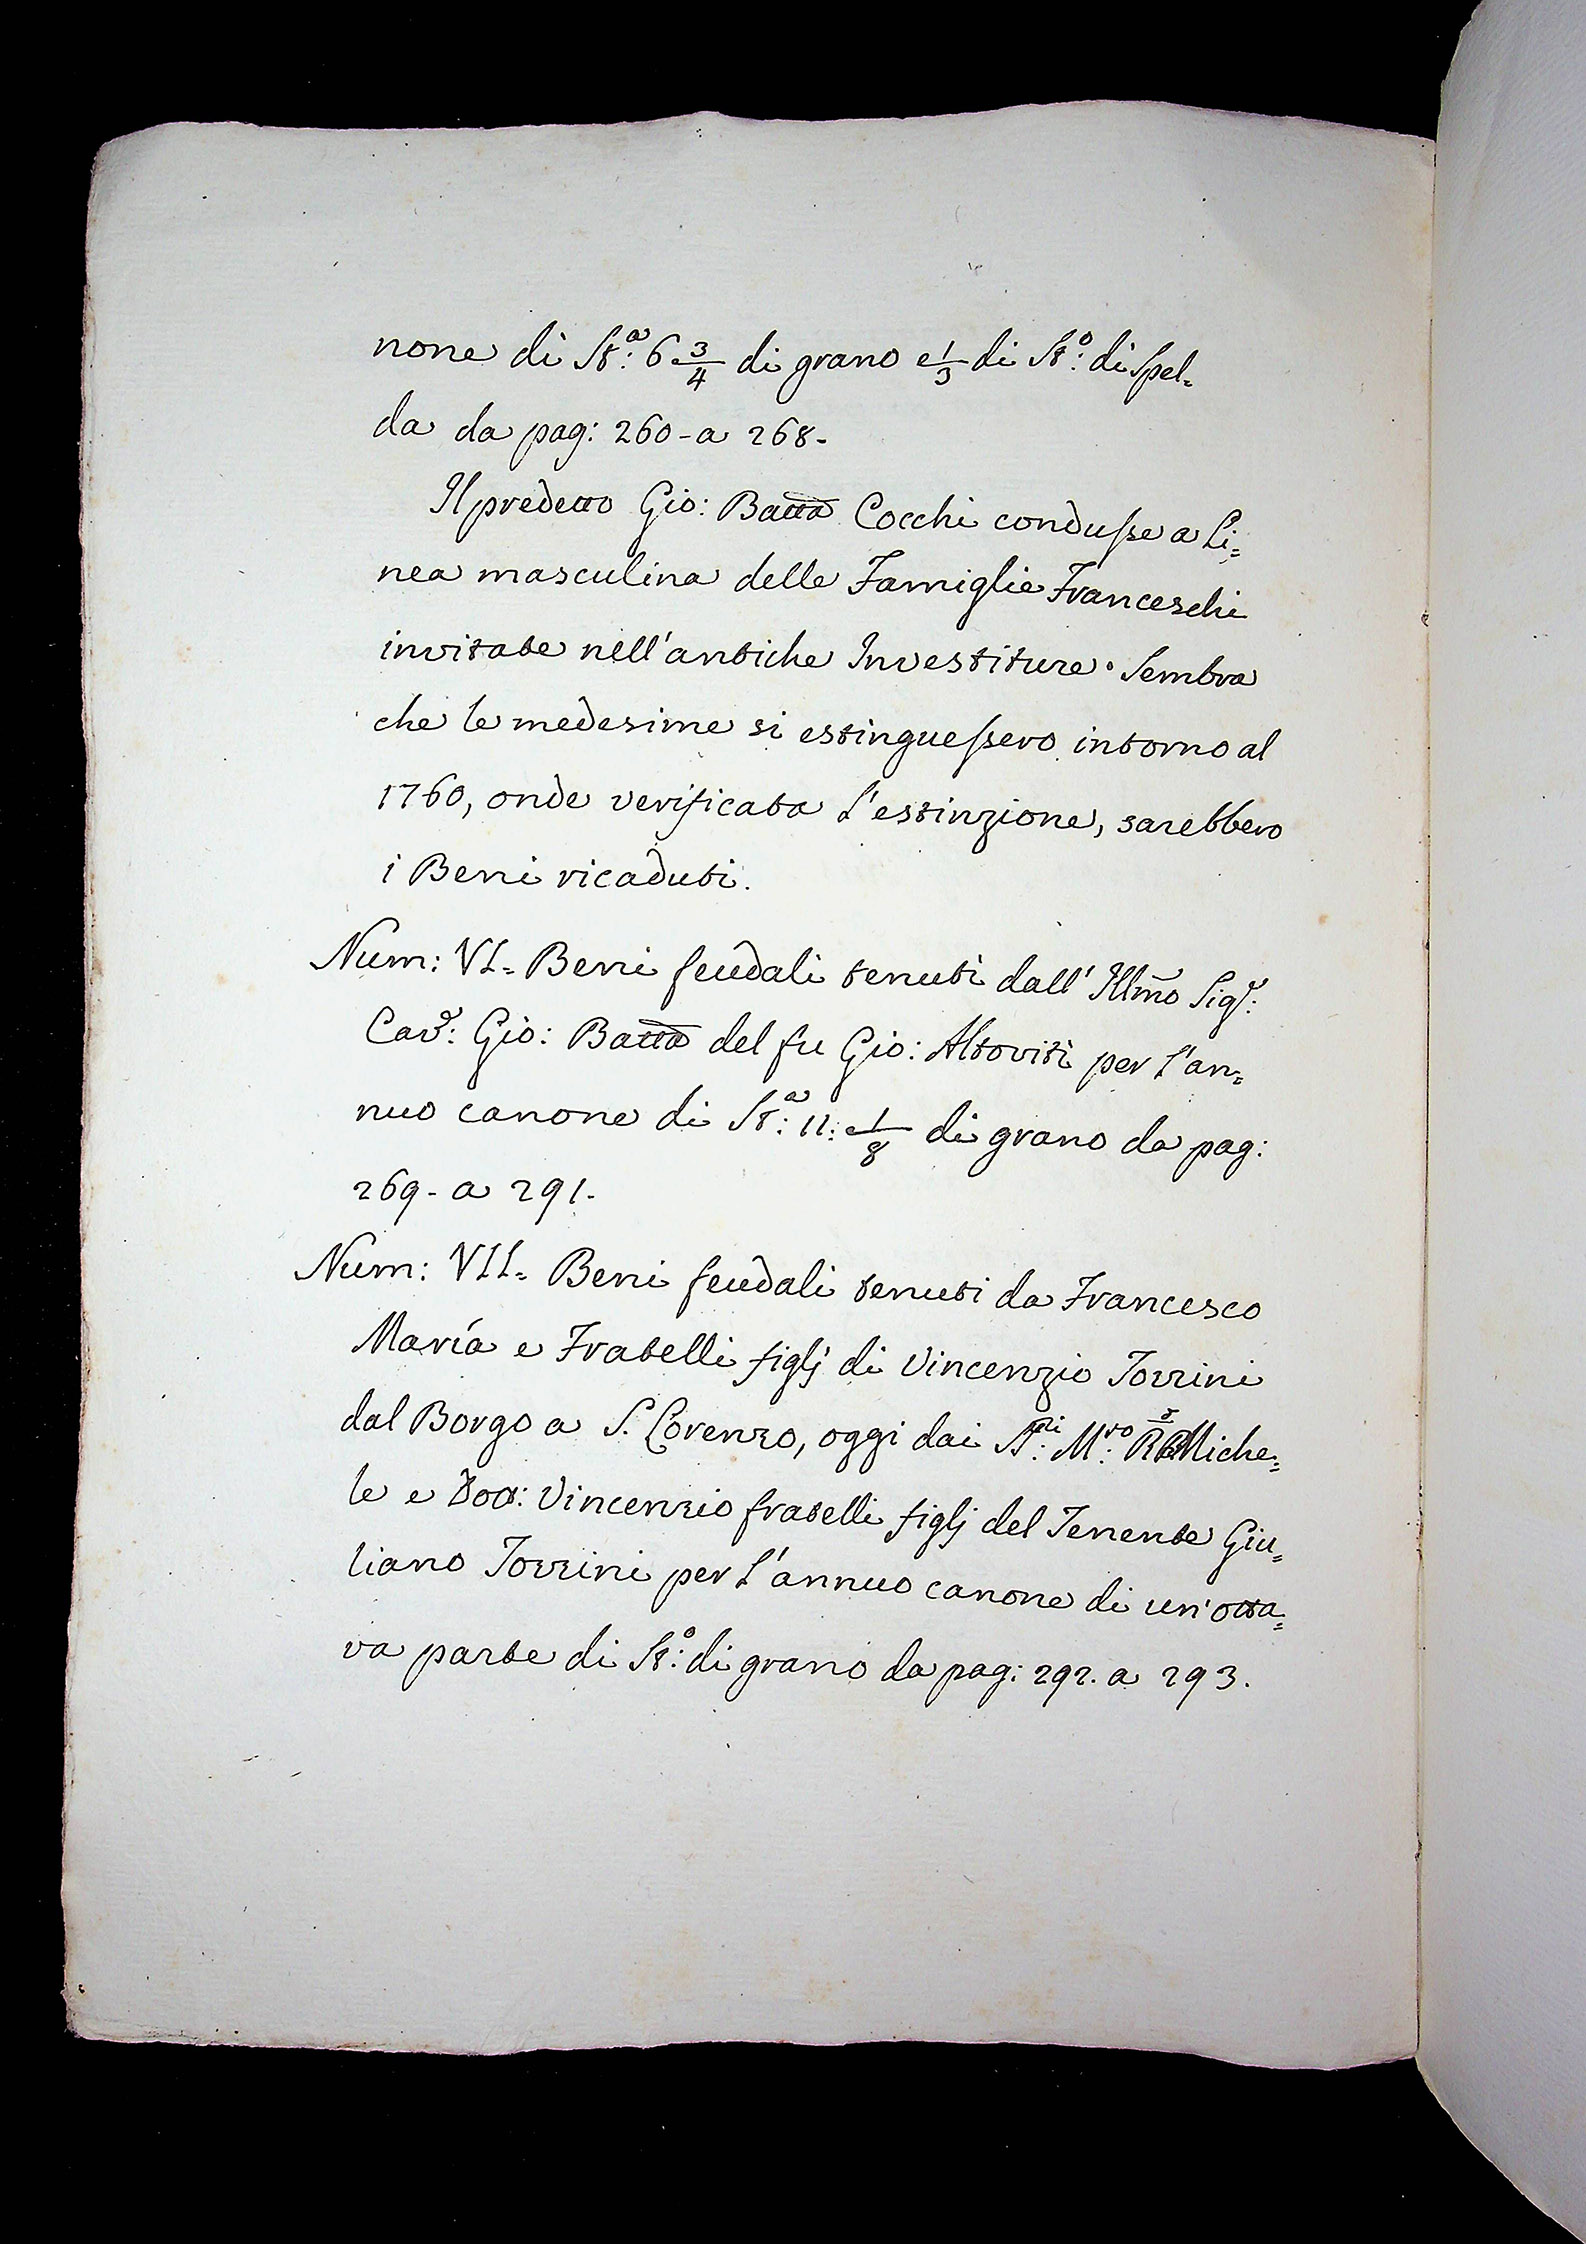 none di St.ª: 6 3/4 di grano e 1/3 di St.º: di Spel=
da da pag: 260 - a 268 -
Il predetto Gio: Batta Cocchi condusse a Li=
nea masculina delle Famiglie Franceschi
invitate nell'antiche Investiture. Sembra
che le medesime si estinguessero intorno al
1760, onde verificata l'estinzione, sarebbero
i Beni ricaduti.
Num: VI= Beni feudali tenuti dall' Illmo Sigr:
Cavr: Gio: Batta del fu Gio: Altoviti per l'an=
nuo canone di St.ª: 11: e 1/8 di grano da pag:
269 - a 291 -
Num: VII= Beni feudali tenuti da Francesco
María e Fratelli figlj di Vincenzio Torrini
dal Borgo a S. Lorenzo, oggi dai Sri: Mro: Miche=
le e Dott: Vincenzio fratelli figlj del Tenente Giu=
liano Torrini per l'annuo canone di un'otta=
va parte di St.º: di grano da pag: 292. a 293.